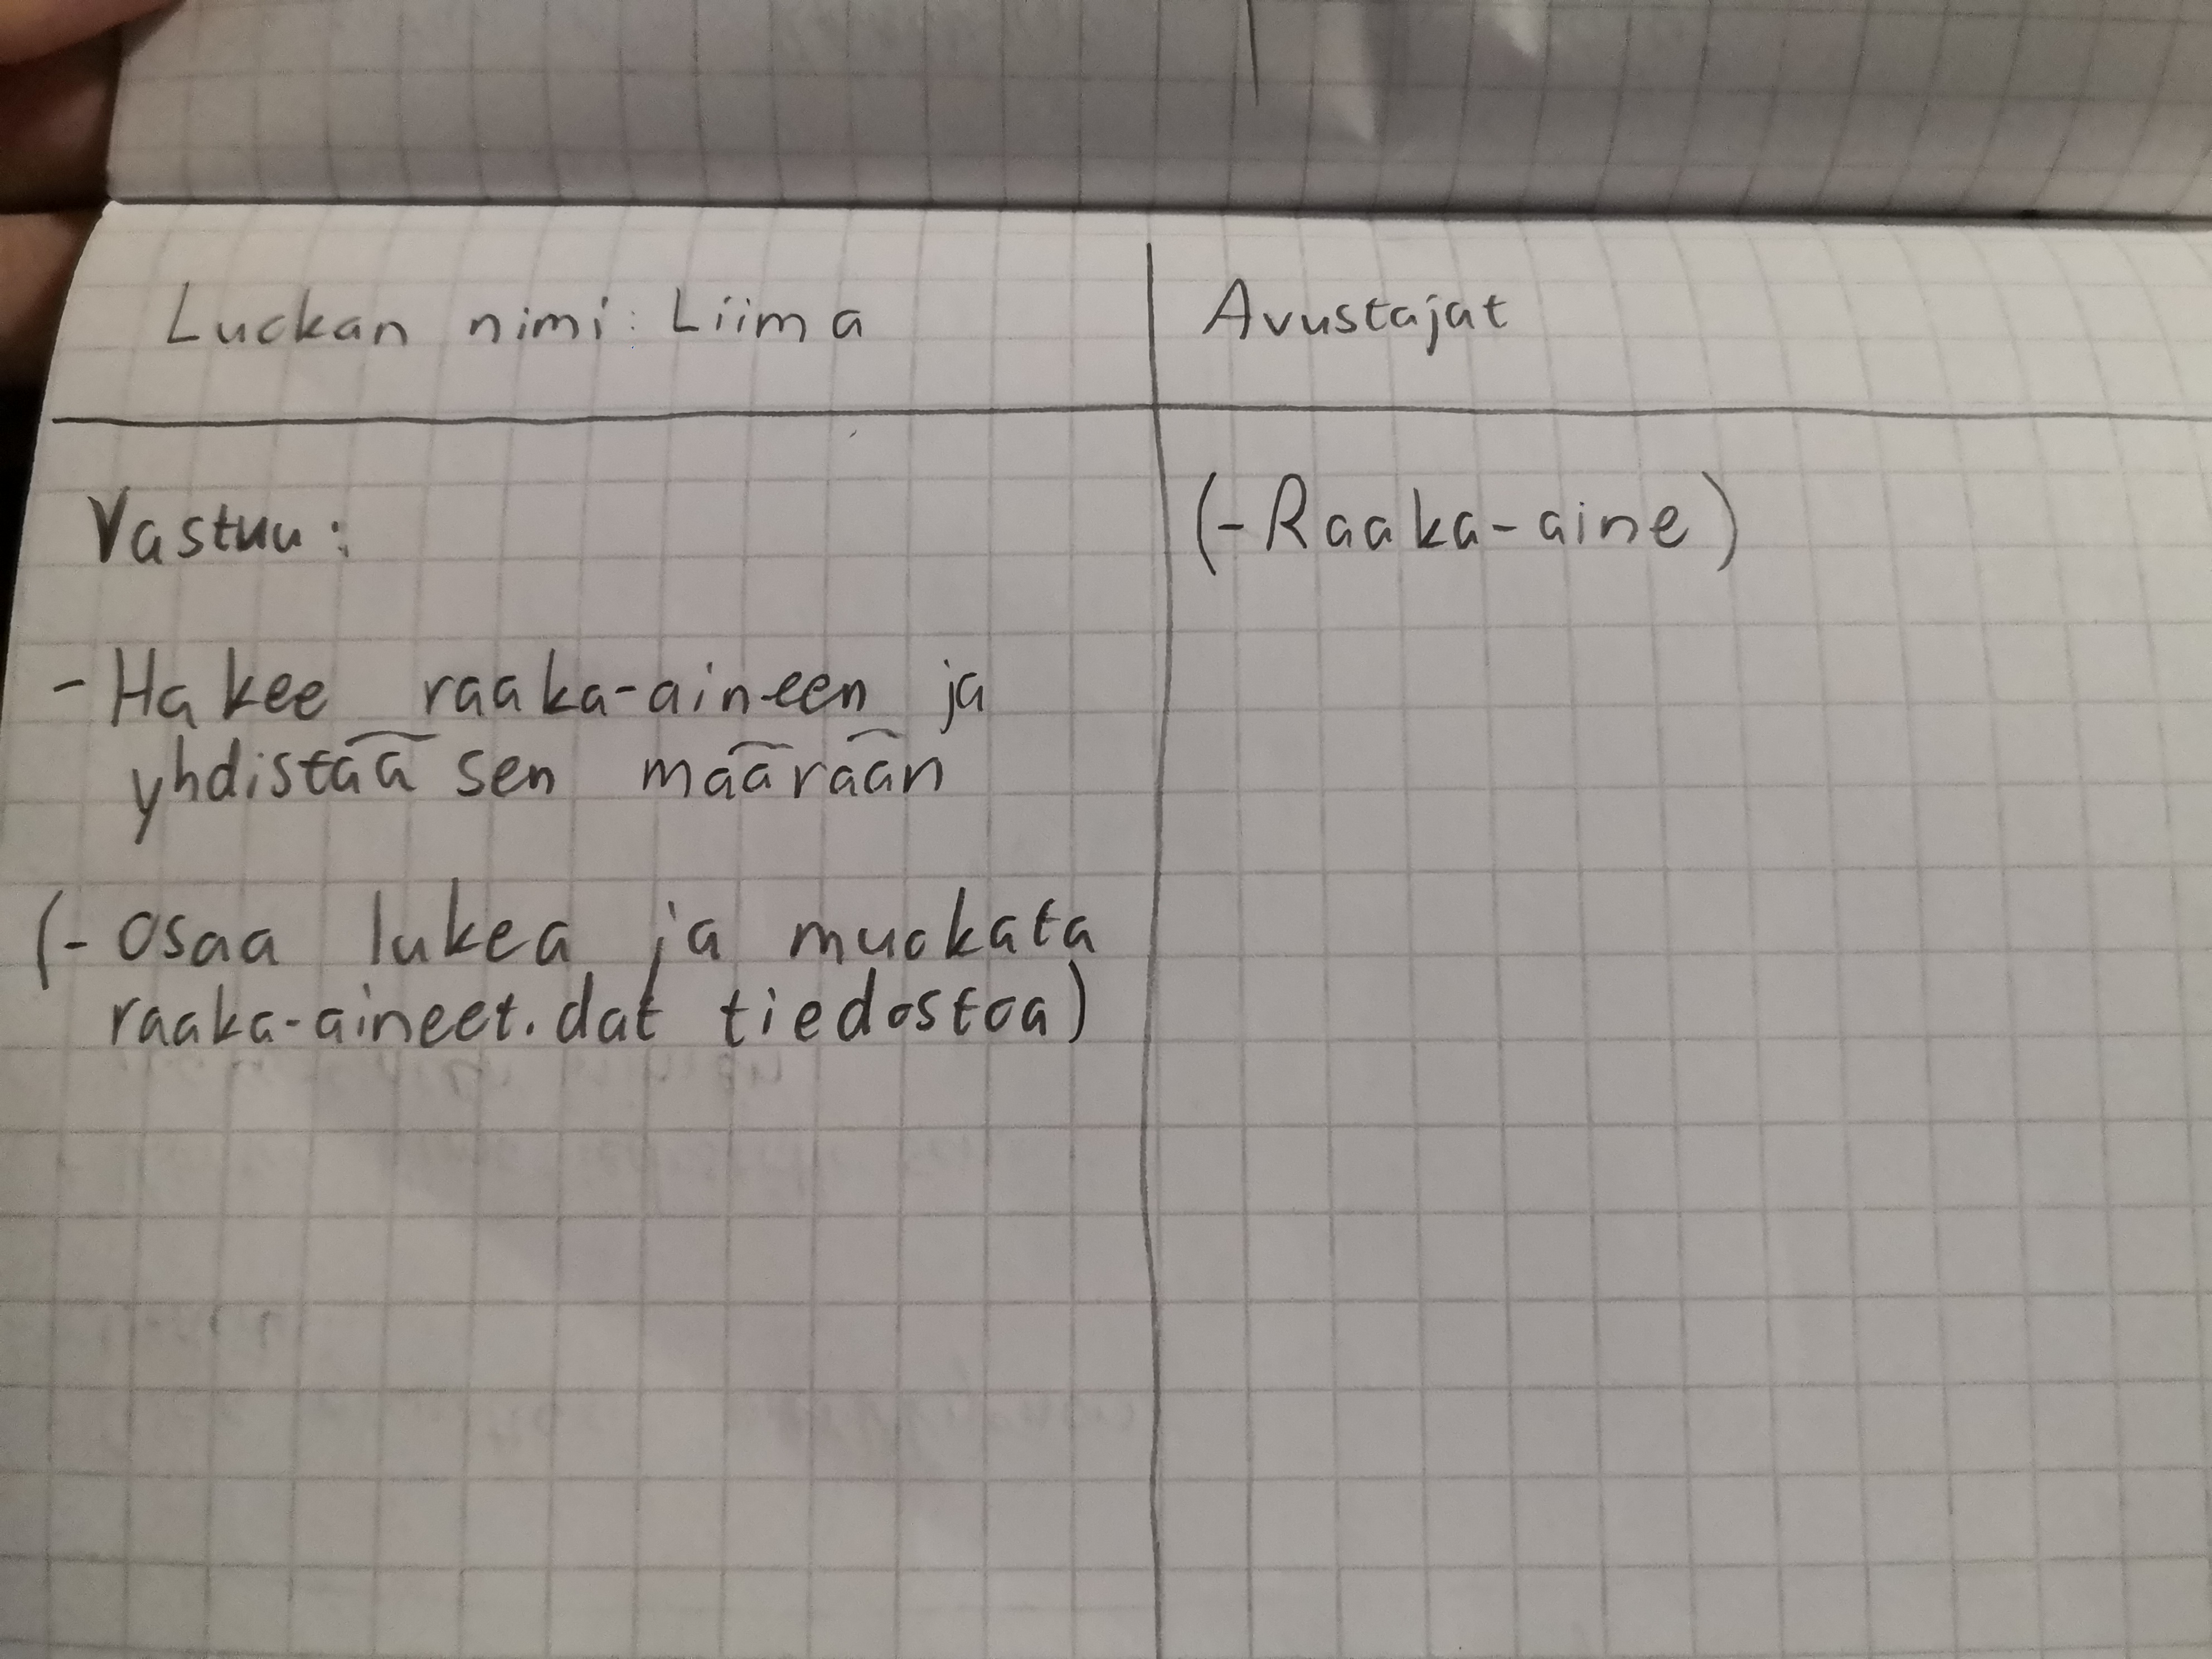 Luokan nimi: Liima
Avustajat
Vastuu:
(-Raaka-aine)
- Hakee raaka-aineen ja
yhdistää sen määrään
(- Osaa lukea ja muokata
raaka-aineet.dat tiedostoa)